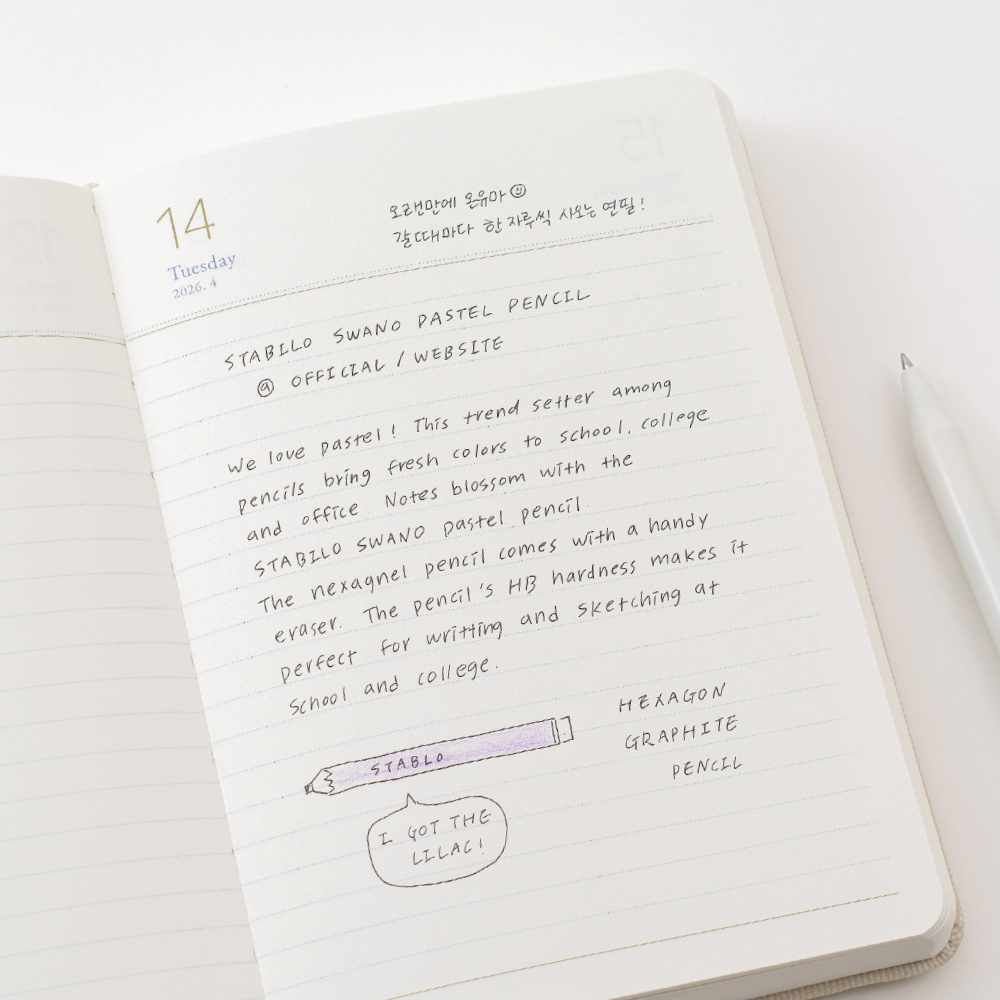 14
Tuesday
2026. 4
오랜만에 온유마
갈때마다 한 자루씩 사오는 연필!
STABILO SWANO PASTEL PENCIL
@ OFFICIAL / WEBSITE
We love pastel! This trend setter among
pencils bring fresh colors to school, college
and office Notes blossom with the
STABILO SWANO pastel pencil.
The nexagnel pencil comes with a handy
eraser. The pencil's HB hardness makes it
perfect for writting and sketching at
School and college.
STABLO
HEXAGON
GRAPHITE
PENCIL
I GOT THE
LILAC!
15
12